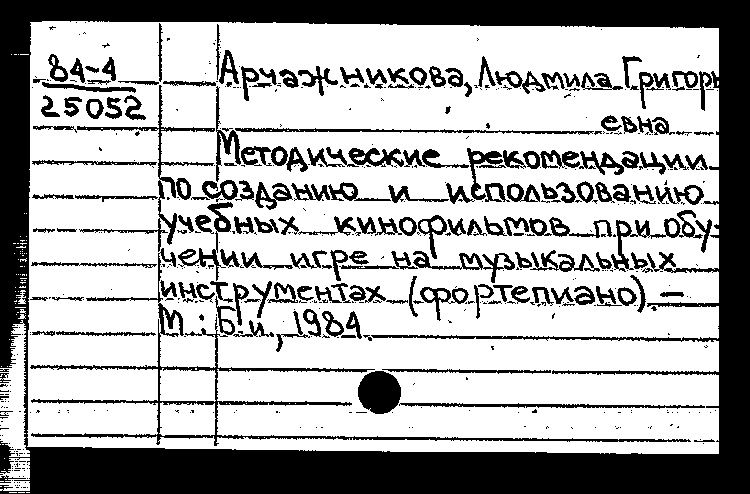 84-4
25052
Арчажникова, Людмила Григорь
евна
Методические рекомендации
по созданию и использованию
учебных кинофильмов при обу-
чении игре на музыкальных
инструментах (фортепиано). —
М.: Б.и., 1984.